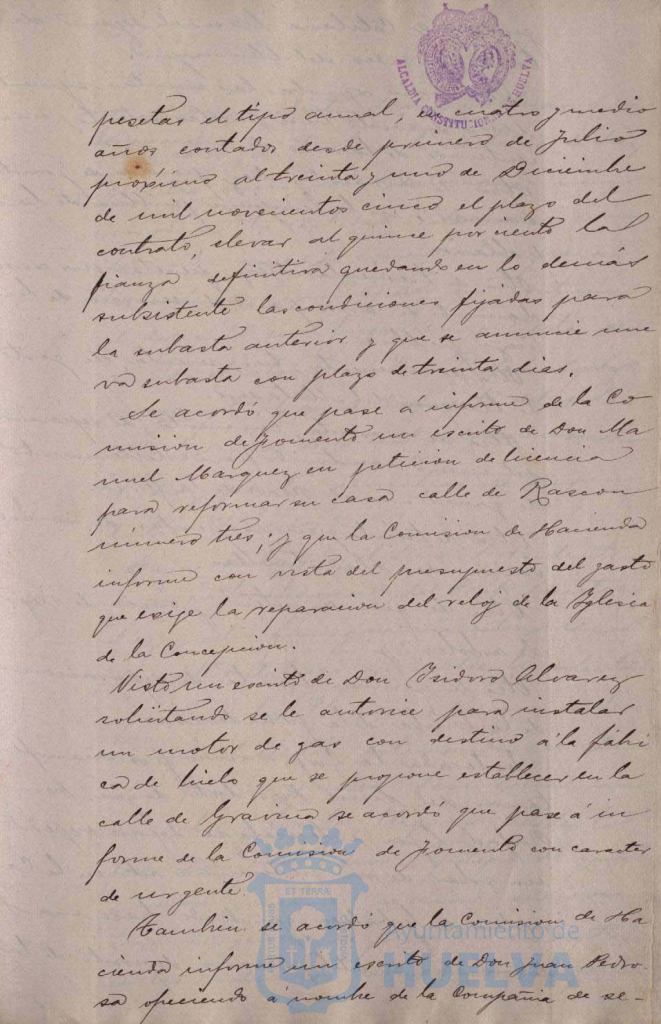 ALCALDIA CONSTITUCIONAL HUELVA
pesetas el tipo anual, en cuatro y medio
años contados desde primero de Julio
próximo al treinta y uno de Diciembre
de mil novecientos cinco el plazo del
contrato, elevar al quince por ciento la
fianza definitiva quedando en lo demás
subsistente las condiciones fijadas para
la subasta anterior y que se anuncie nue
va subasta con plazo de treinta dias.
Se acordó que pase á informe de la Co
mision de Fomento un escrito de Don Ma
nuel Marquez en peticion de licencia
para reformar su casa calle de Rascon
número tres; y que la Comision de Hacienda
informe con vista del presupuesto del gasto
que exige la reparacion del reloj de la Iglesia
de la Concepcion.
Visto un escrito de Don Isidoro Alvarez
solicitando se le autorice para instalar
un motor de gas con destino á la fábri
ca de hielo que se propone establecer en la
calle de Gravina se acordó que pase á in
forme de la Comision de Fomento con caracter
de urgente.
Tambien se acordó que la Comision de Ha
cienda informe un escrito de Don Juan Pedro-
sa ofreciendo á nombre de la Compañia de se-
ET TERRAE
Ayuntamiento de
HUELVA